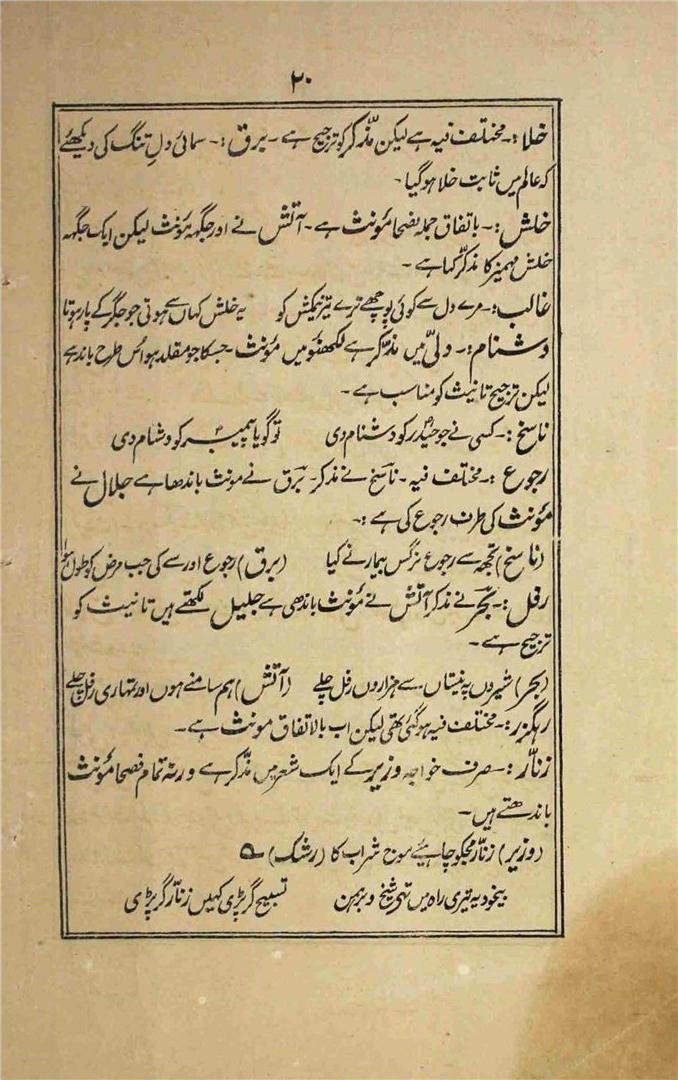 ۲۰
خلا :۔ مختلف فیہ ہے لیکن مذّکر کو ترجیح ہے ۔ برق :۔ سمائی دلِ تنگ کی دیکھئے
کہ عالم میں ثابت خلا ہوگیا ۔
خلش :۔ باتفاق جملہ فصحا مؤنث ہے ۔ آتش نے اور جگہہ مؤنث لیکن ایک جگہہ
خلش مہمیز کا مذکر کہا ہے ۔
غالب :۔ مرے دل سے کوئی پوچھے ترے تیر نیمکش کو یہ خلش کہاں سے ہوتی جو جگر کے پار ہوتا
دشنام :۔ دلّی میں مذّکر ہے لکھنؤ میں مؤنث ۔ جسکا جو مقلد ہو اُس طرح باندہے
لیکن ترجیح تانیث کو مناسب ہے ۔
ناسخ :۔ کسی نے جو حیدر کو دشنام دی تو گویا پیمبر کو دشنام دی
رجوع :۔ مختلف فیہ ۔ ناسخ نے مذکر ۔ برق نے مونث باندھا ہے جلال نے
مؤنث کی طرف رجوع کی ہے :۔
(ناسخ) تجھ سے رجوع نرگس بیمار نے کیا (برق) رجوع اور سے کی جب مرض کو طول ہوا
رفل :۔ بحر نے مذکر آتش نے مؤنث باندھی ہے جلیل لکھتے ہیں تانیث کو
ترجیح ہے ۔
(بحر) شیروں پہ نیستاں سے ہزاروں رفل چلے (آتش) ہم سامنے ہوں اور تمہاری رفل چلے
رہگزر :۔ مختلف فیہ ہوگئی تھی لیکن اب بالاتفاق مونث ہے ۔
زنّار :۔ صرف خواجہ وزیر کے ایک شعر میں مذّکر ہے ورنہ تمام فصحا مؤنث
باندھتے ہیں ۔
(وزیر) زنّار مجکو چاہیئے موج شراب کا (رشک) ؎
بیخود یہ تیری راہ میں تھے شیخ و برہمن تسبیح گر پڑی کہیں زنّار گر پڑی